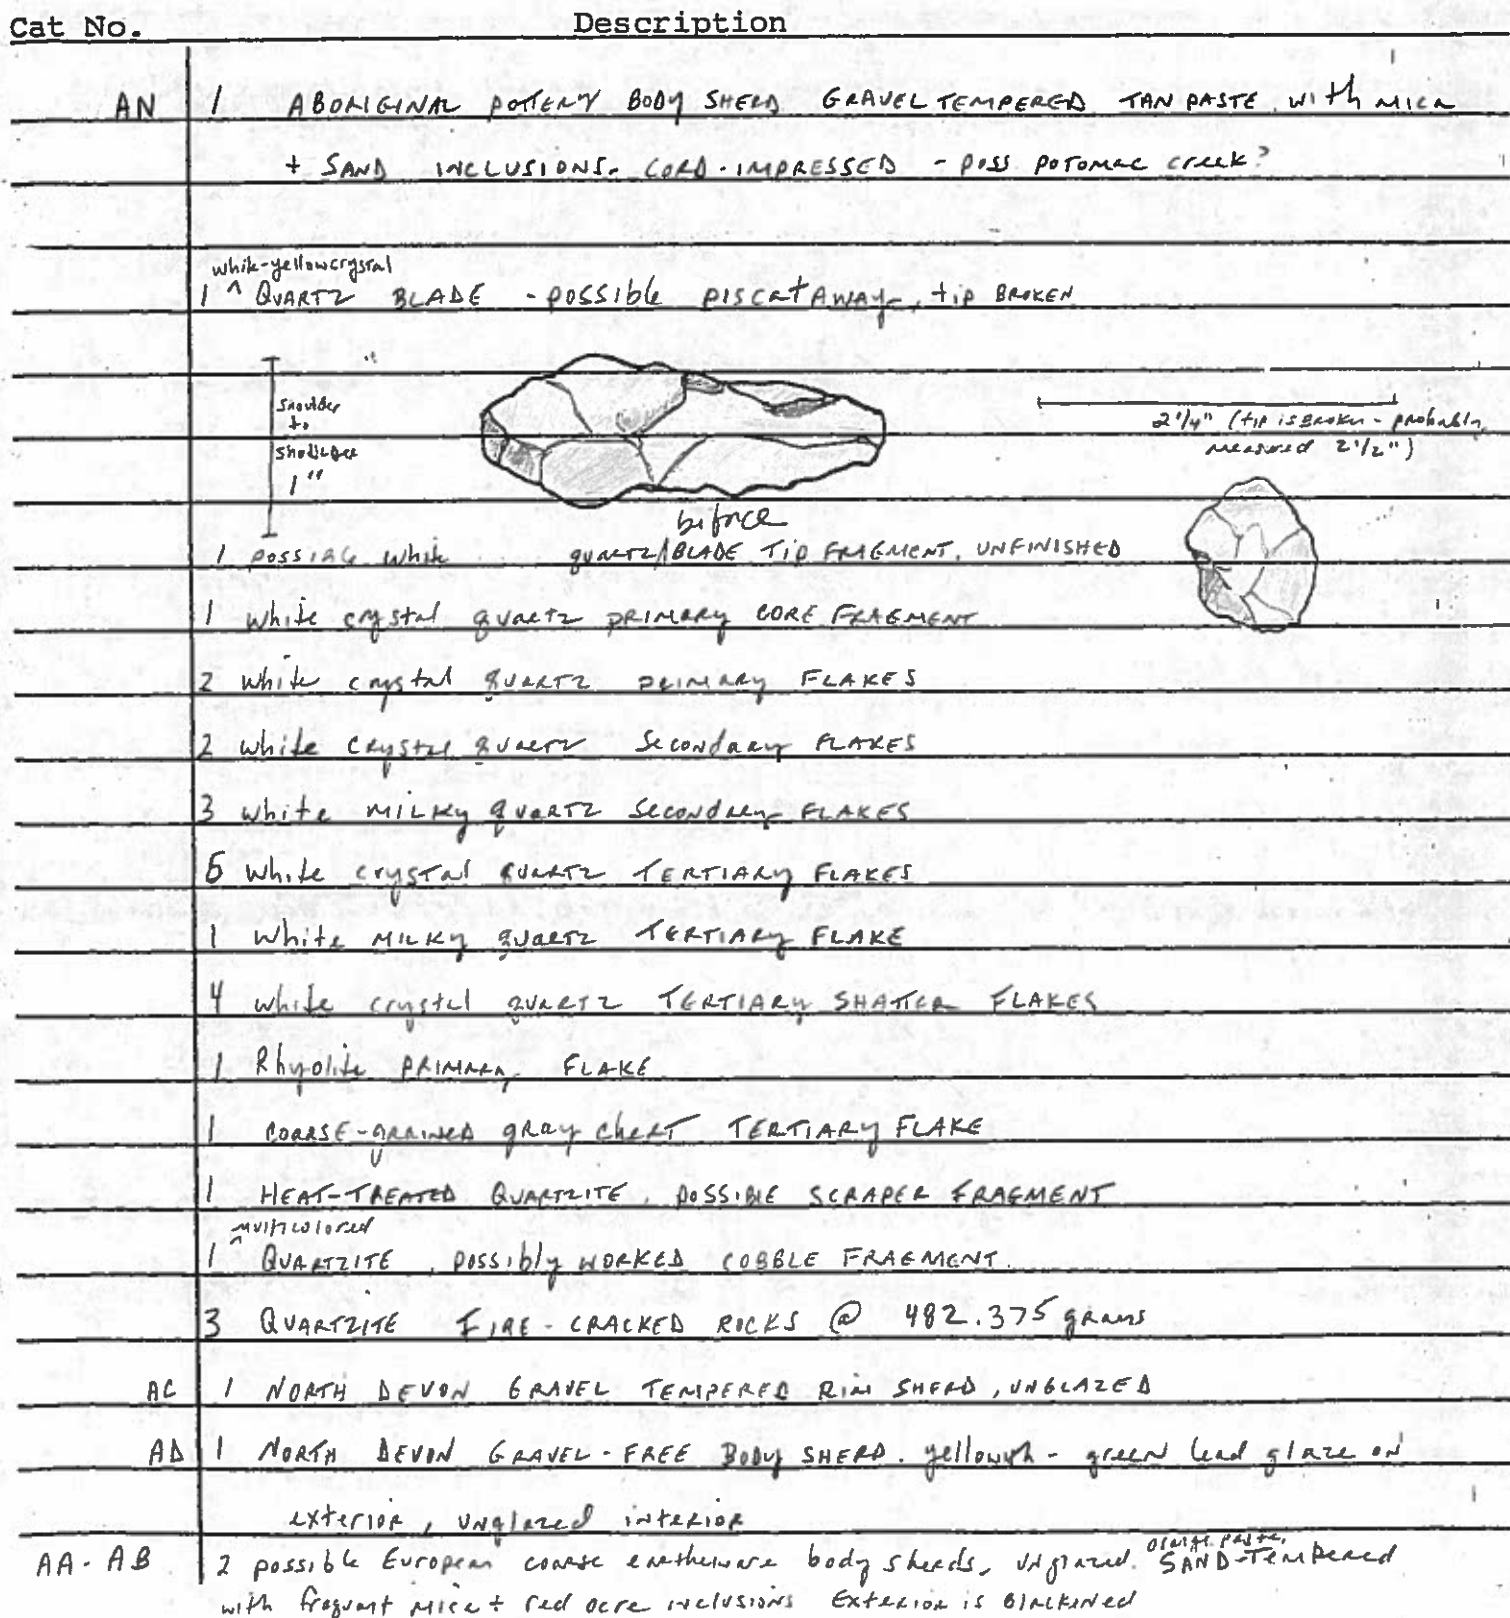 Cat No. Description
AN 1 ABORIGINAL POTTERY BODY SHERD GRAVEL TEMPERED TAN PASTE with mica
+ SAND INCLUSIONS. CORD-IMPRESSED - poss. POTOMAC CREEK?
white-yellow crystal
1 ^ QUARTZ BLADE - POSSIBLE PISCATAWAY, tip BROKEN
shoulder
to
shoulder
1"
2 1/4" (tip is BROKEN - probably
measured 2 1/2")
biface
1 POSSIBLE white quartz/BLADE TIP FRAGMENT, UNFINISHED
1 white crystal quartz PRIMARY CORE FRAGMENT
2 white crystal quartz PRIMARY FLAKES
2 white crystal quartz Secondary FLAKES
3 white MILKY quartz Secondary FLAKES
5 white crystal quartz TERTIARY FLAKES
1 White MILKY quartz TERTIARY FLAKE
4 white crystal quartz TERTIARY SHATTER FLAKES
1 Rhyolite PRIMARY FLAKE
1 COARSE-grained gray chert TERTIARY FLAKE
1 HEAT-TREATED QUARTZITE, POSSIBLE SCRAPER FRAGMENT
multicolored
1 ^ QUARTZITE, possibly WORKED COBBLE FRAGMENT.
3 QUARTZITE FIRE-CRACKED ROCKS @ 482.375 grams
AC 1 NORTH DEVON GRAVEL TEMPERED RIM SHERD, UNGLAZED
AD 1 NORTH DEVON GRAVEL-FREE BODY SHERD. yellowish-green lead glaze on
exterior, unglazed interior
orange paste,
AA-AB 2 possible European coarse earthenware body sherds, unglazed. SAND-Tempered
with frequent mica + red ocre inclusions Exterior is Blackened